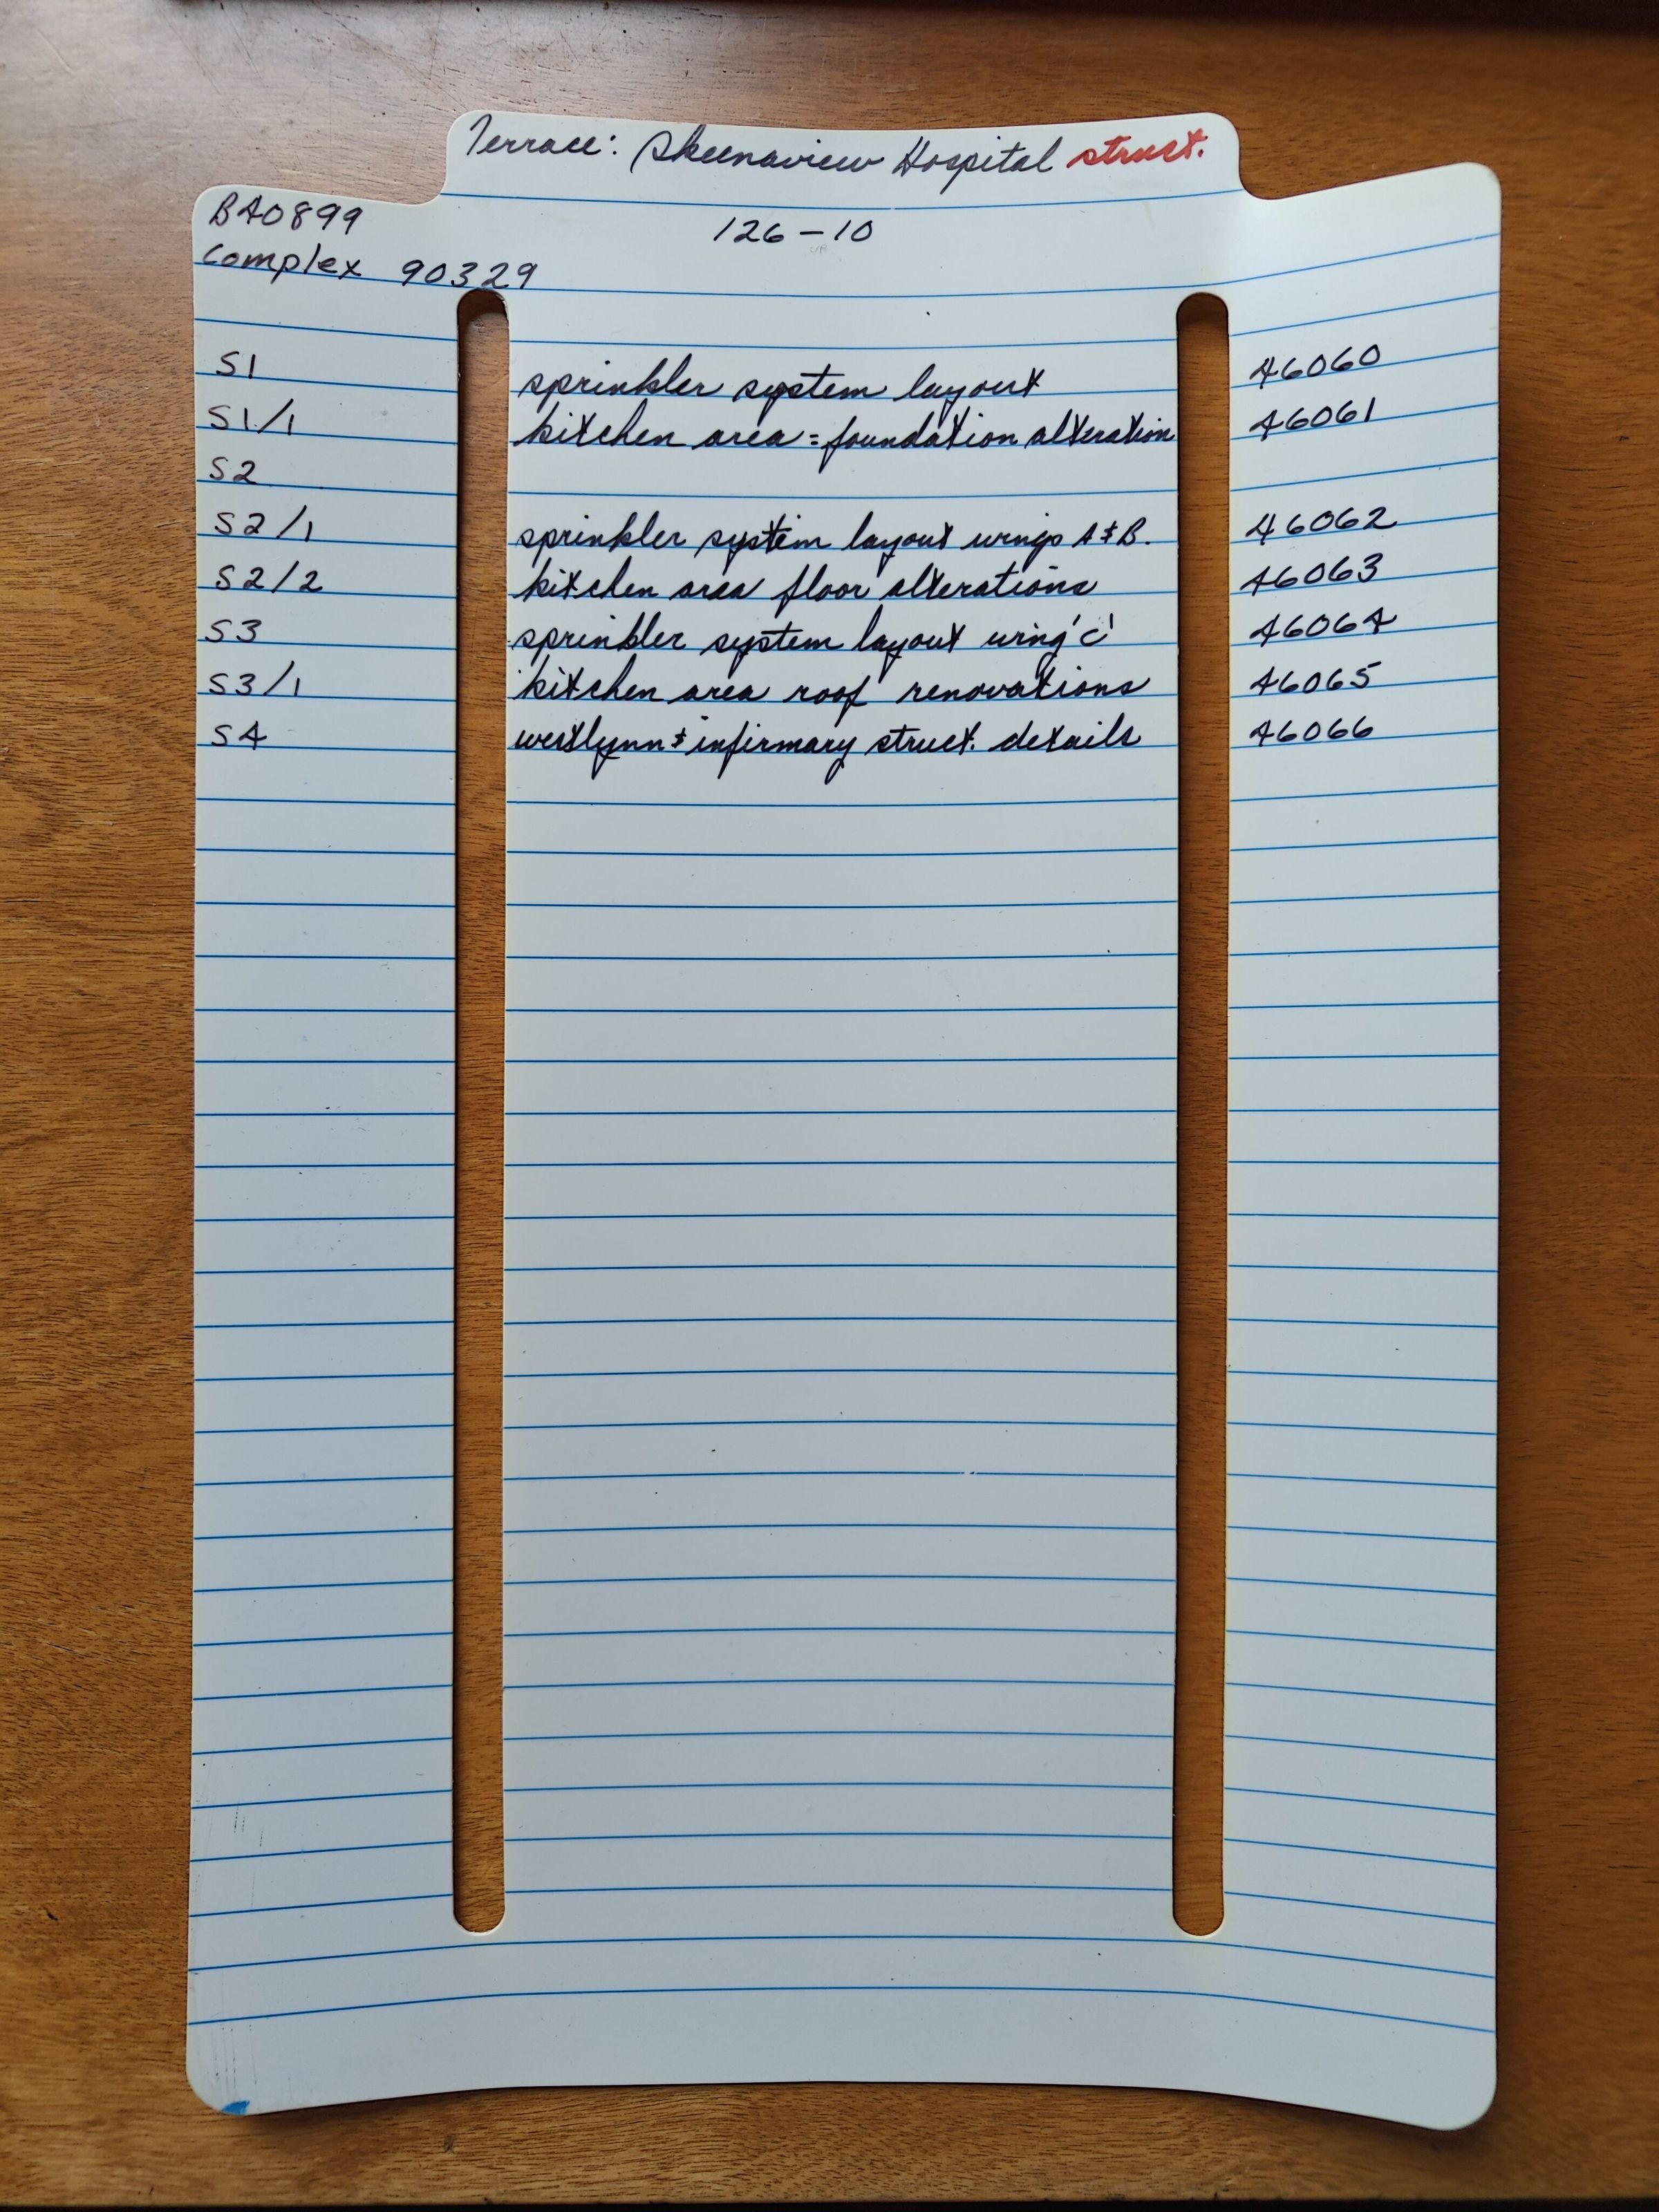 Terrace: Skeenaview Hospital struct.
B40899
126-10
Complex 90329
S1 sprinkler system layout 46060
S1/1 kitchen area = foundation alteration 46061
S2
S2/1 sprinkler system layout wings A & B. 46062
S2/2 kitchen area floor alterations 46063
S3 sprinkler system layout wing 'c' 46064
S3/1 kitchen area roof renovations 46065
S4 westlynn & infirmary struct. details 46066